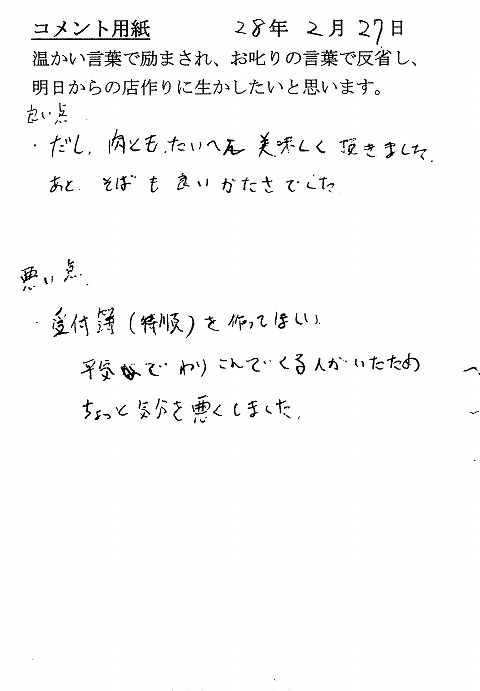 コメント用紙 28年 2月 27日
温かい言葉で励まされ、お叱りの言葉で反省し、
明日からの店作りに生かしたいと思います。
良い点
・だし、肉とも、たいへん 美味しく 頂きました。
あと、そばも良いかたさでした。
悪い点
・受付簿（待順）を作ってほしい。
平気でわりこんでくる人がいたため
ちょっと気分を悪くしました。